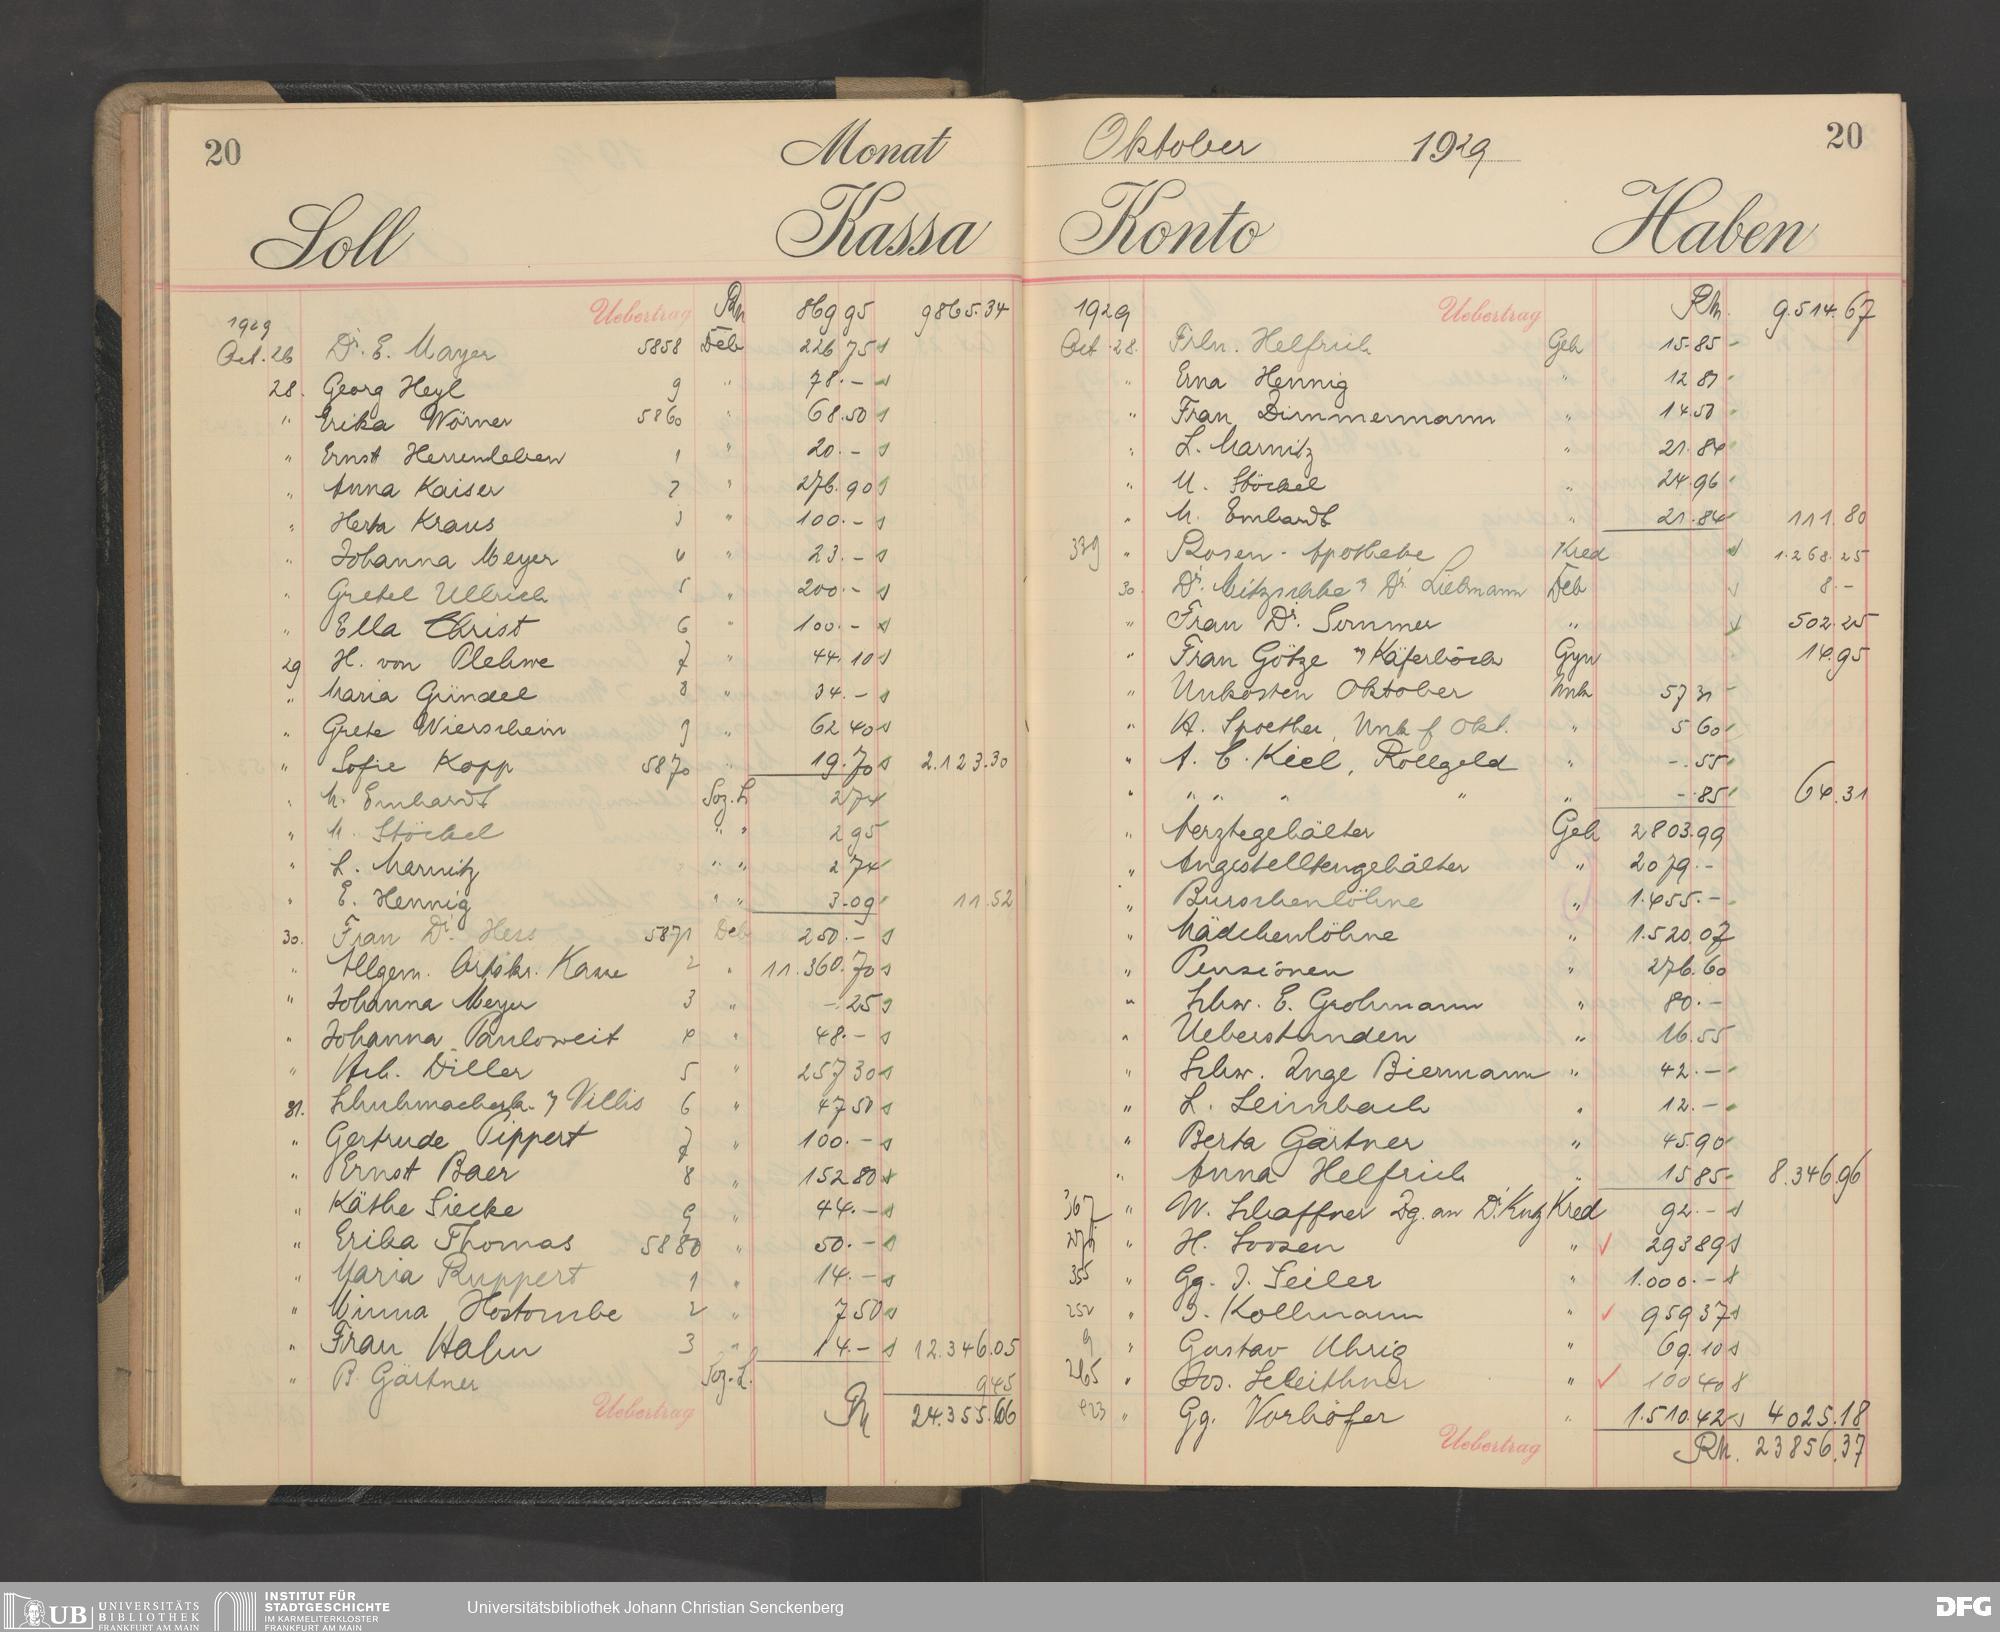 20 Monat
Soll Kassa
1929 Uebertrag RM 869 95 9865.34
Oct. 26 Dr. E. Mayer 5858 Deb 226 75
28. Georg Heyl 9 " 78.–
" Erika Wörner 5860 " 68.50
" Ernst Herrenleben 1 " 20.–
" Anna Kaiser 2 " 276.90
" Herta Kraus 3 " 100.–
" Johanna Meyer 4 " 23.–
" Gretel Ullrich 5 " 200.–
" Ella Christ 6 " 100.–
29 H. von Plehwe 7 " 44.10
" Maria Gündel 8 " 34.–
" Grete Wierschein 9 " 62 40
" Sofie Kopp 5870 " 19.70 2.123.30
" M. Emhardt Soz. L 2 74
" M. Stöckel " " 2 95
" L. Marnitz " " 2 74
" E. Hennig " " 3.09 11.52
30. Frau Dr. Hess 5871 Deb 250.–
" Allgem. Ortskr. Kasse 2 " 11.360.70
" Johanna Meyer 3 " –.25
" Johanna Pauloweit 4 " 48.–
" Diller 5 " 257 30
31. 6 " 47 50
" Gertrude Pippert 7 " 100.–
" Ernst Baer 8 " 152 80
" Käthe Siecke 9 " 44.–
" Erika Thomas 5880 " 50.–
" Maria Ruppert 1 " 14.–
" Minna Hostombe 2 " 7 50
" Frau Hahn 3 " 14.– 12.346.05
" B. Gärtner Soz. L. 9 45
Uebertrag RM 24.355.66
Oktober 1929 20
Konto Haben
1929 Uebertrag RM. 9.514.67
Oct. 28. Frln. Helfrich Geh 15.85
" Erna Hennig " 12 87
" Frau Dimmermann " 14.50
" L. Marnitz " 21.84
" M. Stöckel " 24.96
" M. Emhardt " 21.84 111.80
339 " Rosen-Apotheke Kred 1.268.25
30. Dr. Liebmann Deb 8.–
" Frau Dr. Sommer " 502.25
" Frau Götze Gyn 14.95
" Unkosten Oktober Unk 57 31
" A. Spoether, Unk f Okt. " 5 60
" A. C. Kiel, Rollgeld " –.55
" " " " " " –.85 64.31
" Aerztegehälter Geh 2803.99
" Angestelltengehälter " 2079.–
" Burschenlöhne " 1.455.–
" Mädchenlöhne " 1.520.07
" Pensionen " 276.60
" Schw. E. Grohmann " 80.–
" Ueberstunden " 16.55
" Schw. Inge Biermann " 42.–
" L. Leimbach " 12.–
" Berta Gärtner " 45.90
" Anna Helfrich " 15 85 8.346.96
367 " W. Schaffner Zg. an Dr. Kutz Kred 92.–
" H. Soosen " 293 89
355 " Gg. J. Seiler " 1.000.–
252 " J. Kollmann " 959 37
9 " Gustav Uhrig " 69.10
265 " Jos. Scleithner " 100 40
423 " Gg. Vorhöfer " 1.510.42 4025.18
Uebertrag RM. 23856.37
UB UNIVERSITÄTS
BIBLIOTHEK
FRANKFURT AM MAIN
INSTITUT FÜR
STADTGESCHICHTE
IM KARMELITERKLOSTER
FRANKFURT AM MAIN
Universitätsbibliothek Johann Christian Senckenberg
DFG